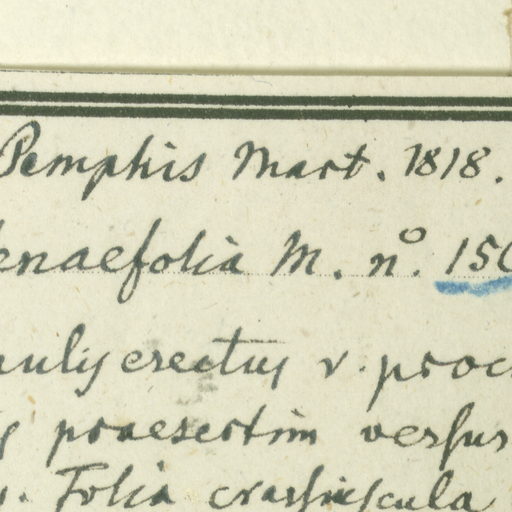 Pemphis Mart. 1818.
enaefolia M. nº. 150
aulis erectus v. proc
praesertim versus
Folia crassiuscula